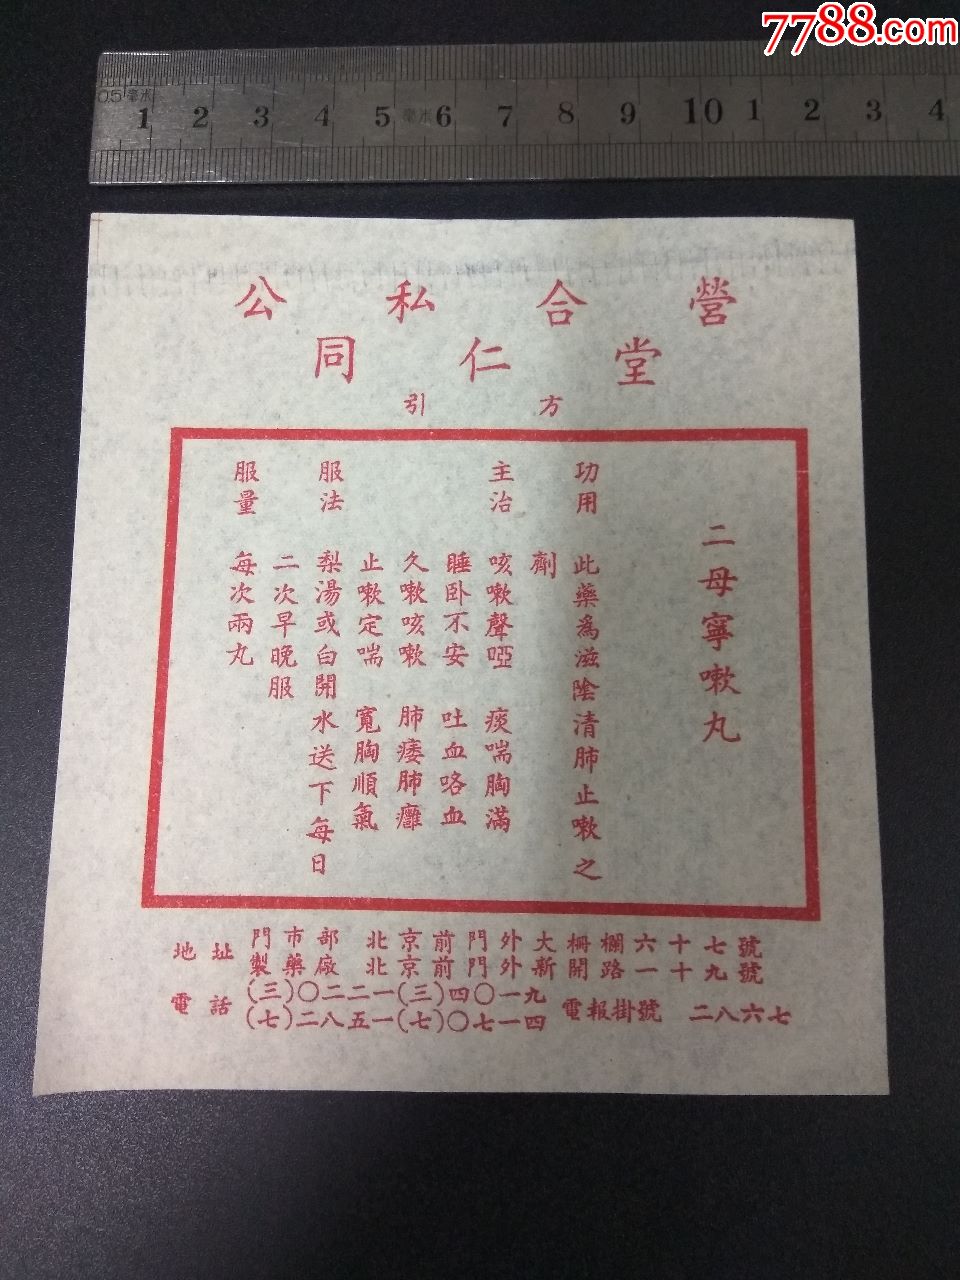 7788.com
0.5毫米
1 2 3 4 5 毫米 6 7 8 9 10 1 2 3 4
公私合營
同仁堂
引方
二母寧嗽丸
功用 此藥為滋陰清肺止嗽之
劑
主治 咳嗽聲啞 痰喘胸滿
睡卧不安 吐血咯血
久嗽咳嗽 肺痿肺癰
止嗽定喘 寬胸順氣
服法 梨湯或白開水送下每日
二次早晚服
服量 每次兩丸
地址 門市部 北京前門外大柵欄六十七號
製藥廠 北京前門外新開路一十九號
電話 (三)〇二二一(三)四〇一九
(七)二八五一(七)〇七一四
電報掛號 二八六七